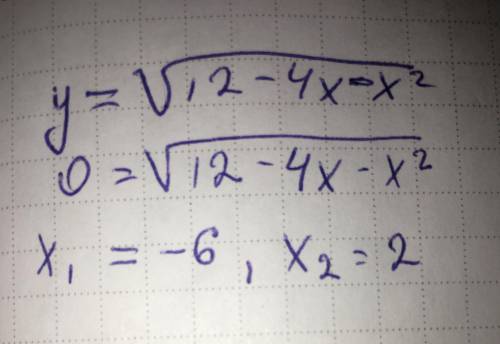 y = √(12 - 4x - x²)
0 = √(12 - 4x - x²)
x₁ = -6, x₂ = 2